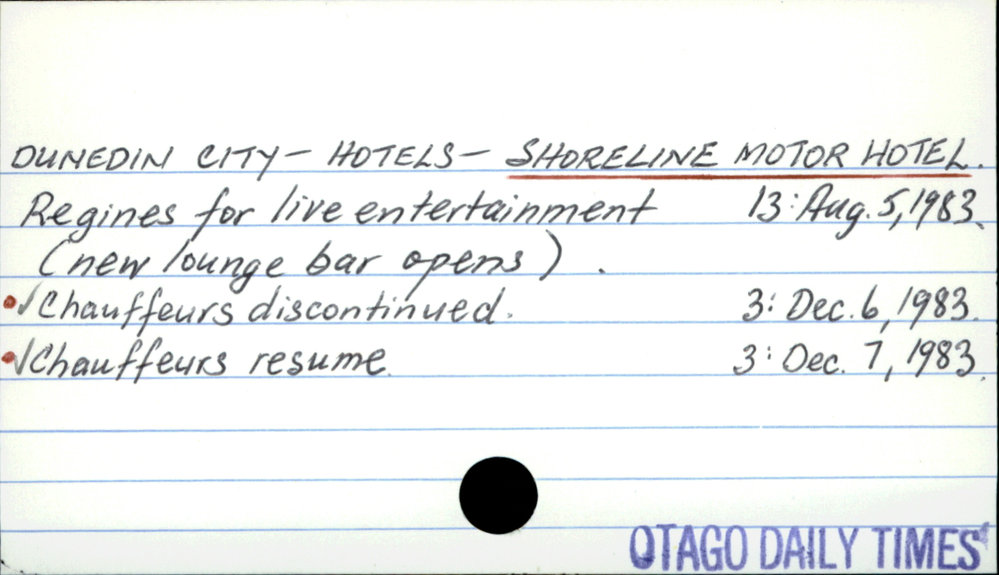 DUNEDIN CITY - HOTELS - SHORELINE MOTOR HOTEL.
Regines for live entertainment 13: Aug. 5, 1983.
(new lounge bar opens).
✓ Chauffeurs discontinued. 3: Dec. 6, 1983.
✓ Chauffeurs resume. 3: Dec. 7, 1983.
OTAGO DAILY TIMES